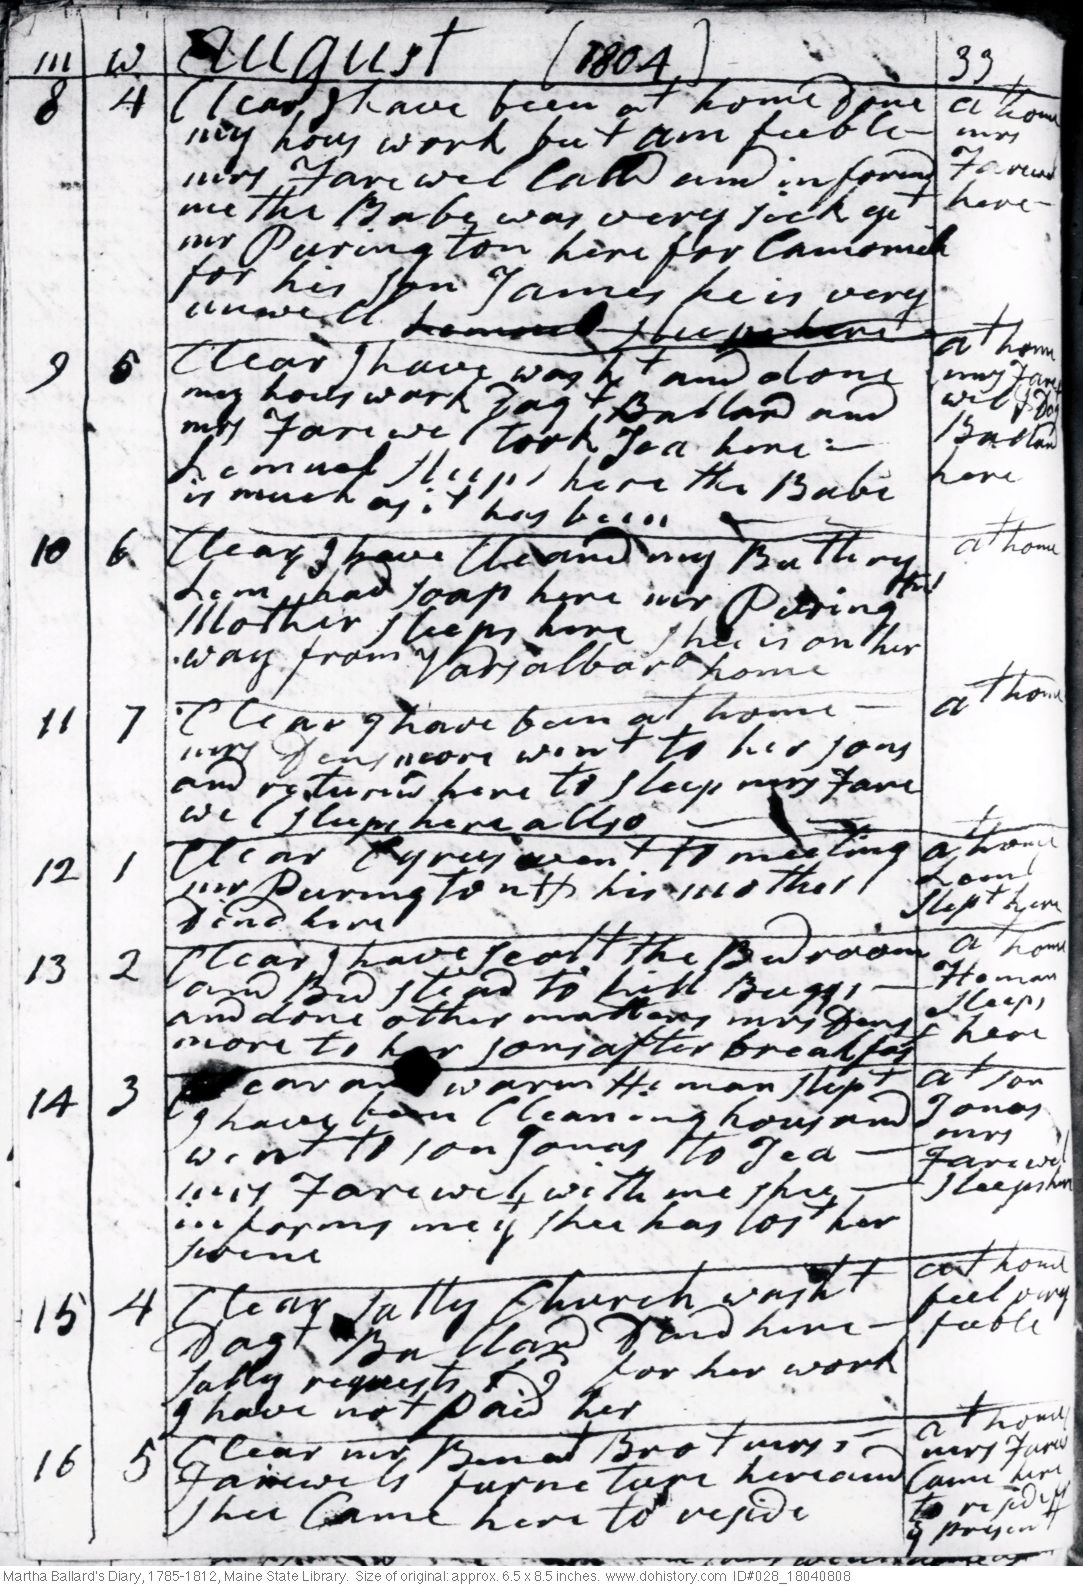 m w August (1804) 33
8 4 Clear I have been at home Done at home
my hous work but am feeble - mrs
mrs Farewel Calld and informd Farewel
me the Babe was very sick yet here -
mr Purington here for Camomiel
for his son James he is very
unwell
9 5 Clear I have washt and done at home
my hous work Dagt Ballard and mrs Fare
mrs Farewel took Tea here - wel & Dag
Lemuel sleeps here the Babe Ballard
is much as it has been here
10 6 Clear I have Cleand my Buttery at home
Lem had soap here mr Puringtns
Mother sleeps here shee is on her
way from Varsalboro home
11 7 Clear I have been at home - at home
mrs Densmore went to her sons
and returnd here to sleep mrs Fare
wel sleeps here allso
12 1 Clear Cyrus went to meeting at home
mr Purington & his mother Lem
Dind here slept here
13 2 Clear I have scalt the Bedroom at home
and Bed stead to kill Buggs - Heman
and done other matters mrs Dens sleeps
more to her sons after breakfast here
14 3 Clear and warm Heman slept at son
I have been Cleaning hous and Jonas
went to son Jonas to Tea - mrs
mrs Farewel with me shee - Farewel
informs me yt shee has lost her sleeps here
swine
15 4 Clear Sally Church washt at home
Dagt Ballard Dind here - feel very
Sally requests for her work feeble
I have not paid her
16 5 Clear mr Brot mrs at home
Farewels furneture here and mrs Farewel
shee Came here to reside Came here
to reside
present
Martha Ballard's Diary, 1785-1812, Maine State Library. Size of original: approx. 6.5 x 8.5 inches. www.dohistory.com ID#028_18040808